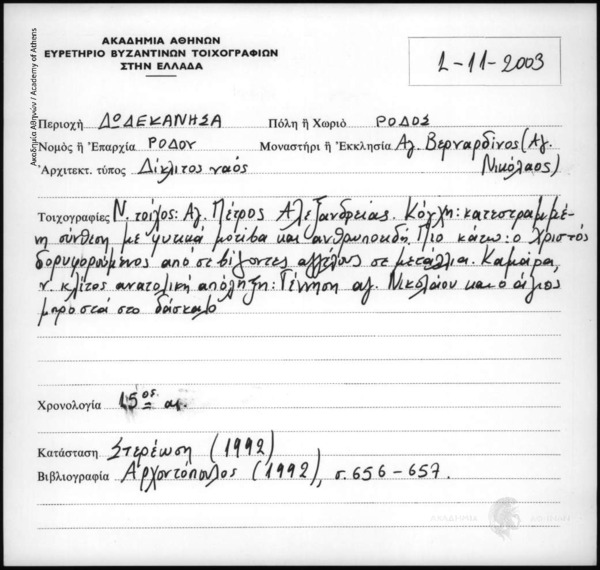 ΑΚΑΔΗΜΙΑ ΑΘΗΝΩΝ
ΕΥΡΕΤΗΡΙΟ ΒΥΖΑΝΤΙΝΩΝ ΤΟΙΧΟΓΡΑΦΙΩΝ
ΣΤΗΝ ΕΛΛΑΔΑ
1-11-2003
Ακαδημία Αθηνών / Academy of Athens
Περιοχὴ ΔΩΔΕΚΑΝΗΣΑ Πόλη ἢ Χωριό ΡΟΔΟΣ
Νομὸς ἢ Ἐπαρχία ΡΟΔΟΥ Μοναστήρι ἢ Ἐκκλησία Αγ. Βερναρδίνος (Αγ.
Νικόλαος)
Ἀρχιτεκτ. τύπος Δίκλιτος ναός
Τοιχογραφίες Ν. τοίχος: Αγ. Πέτρος Αλεξανδρείας. Κόγχη: κατεστραμμέ-
νη σύνθεση με φυτικά μοτίβα και ανθρωποειδή. Πιο κάτω: ο Χριστός
δορυφορούμενος από σεβίζοντες αγγέλους σε μετάλλια. Καμάρα,
ν. κλίτος ανατολική απόληξη: Γέννηση αγ. Νικολάου και ο άγιος
μπροστά στο δάσκαλο
Χρονολογία 15ος αι.
Κατάσταση Στερέωση (1992)
Βιβλιογραφία Αρχοντόπουλος (1992), σ. 656-657.